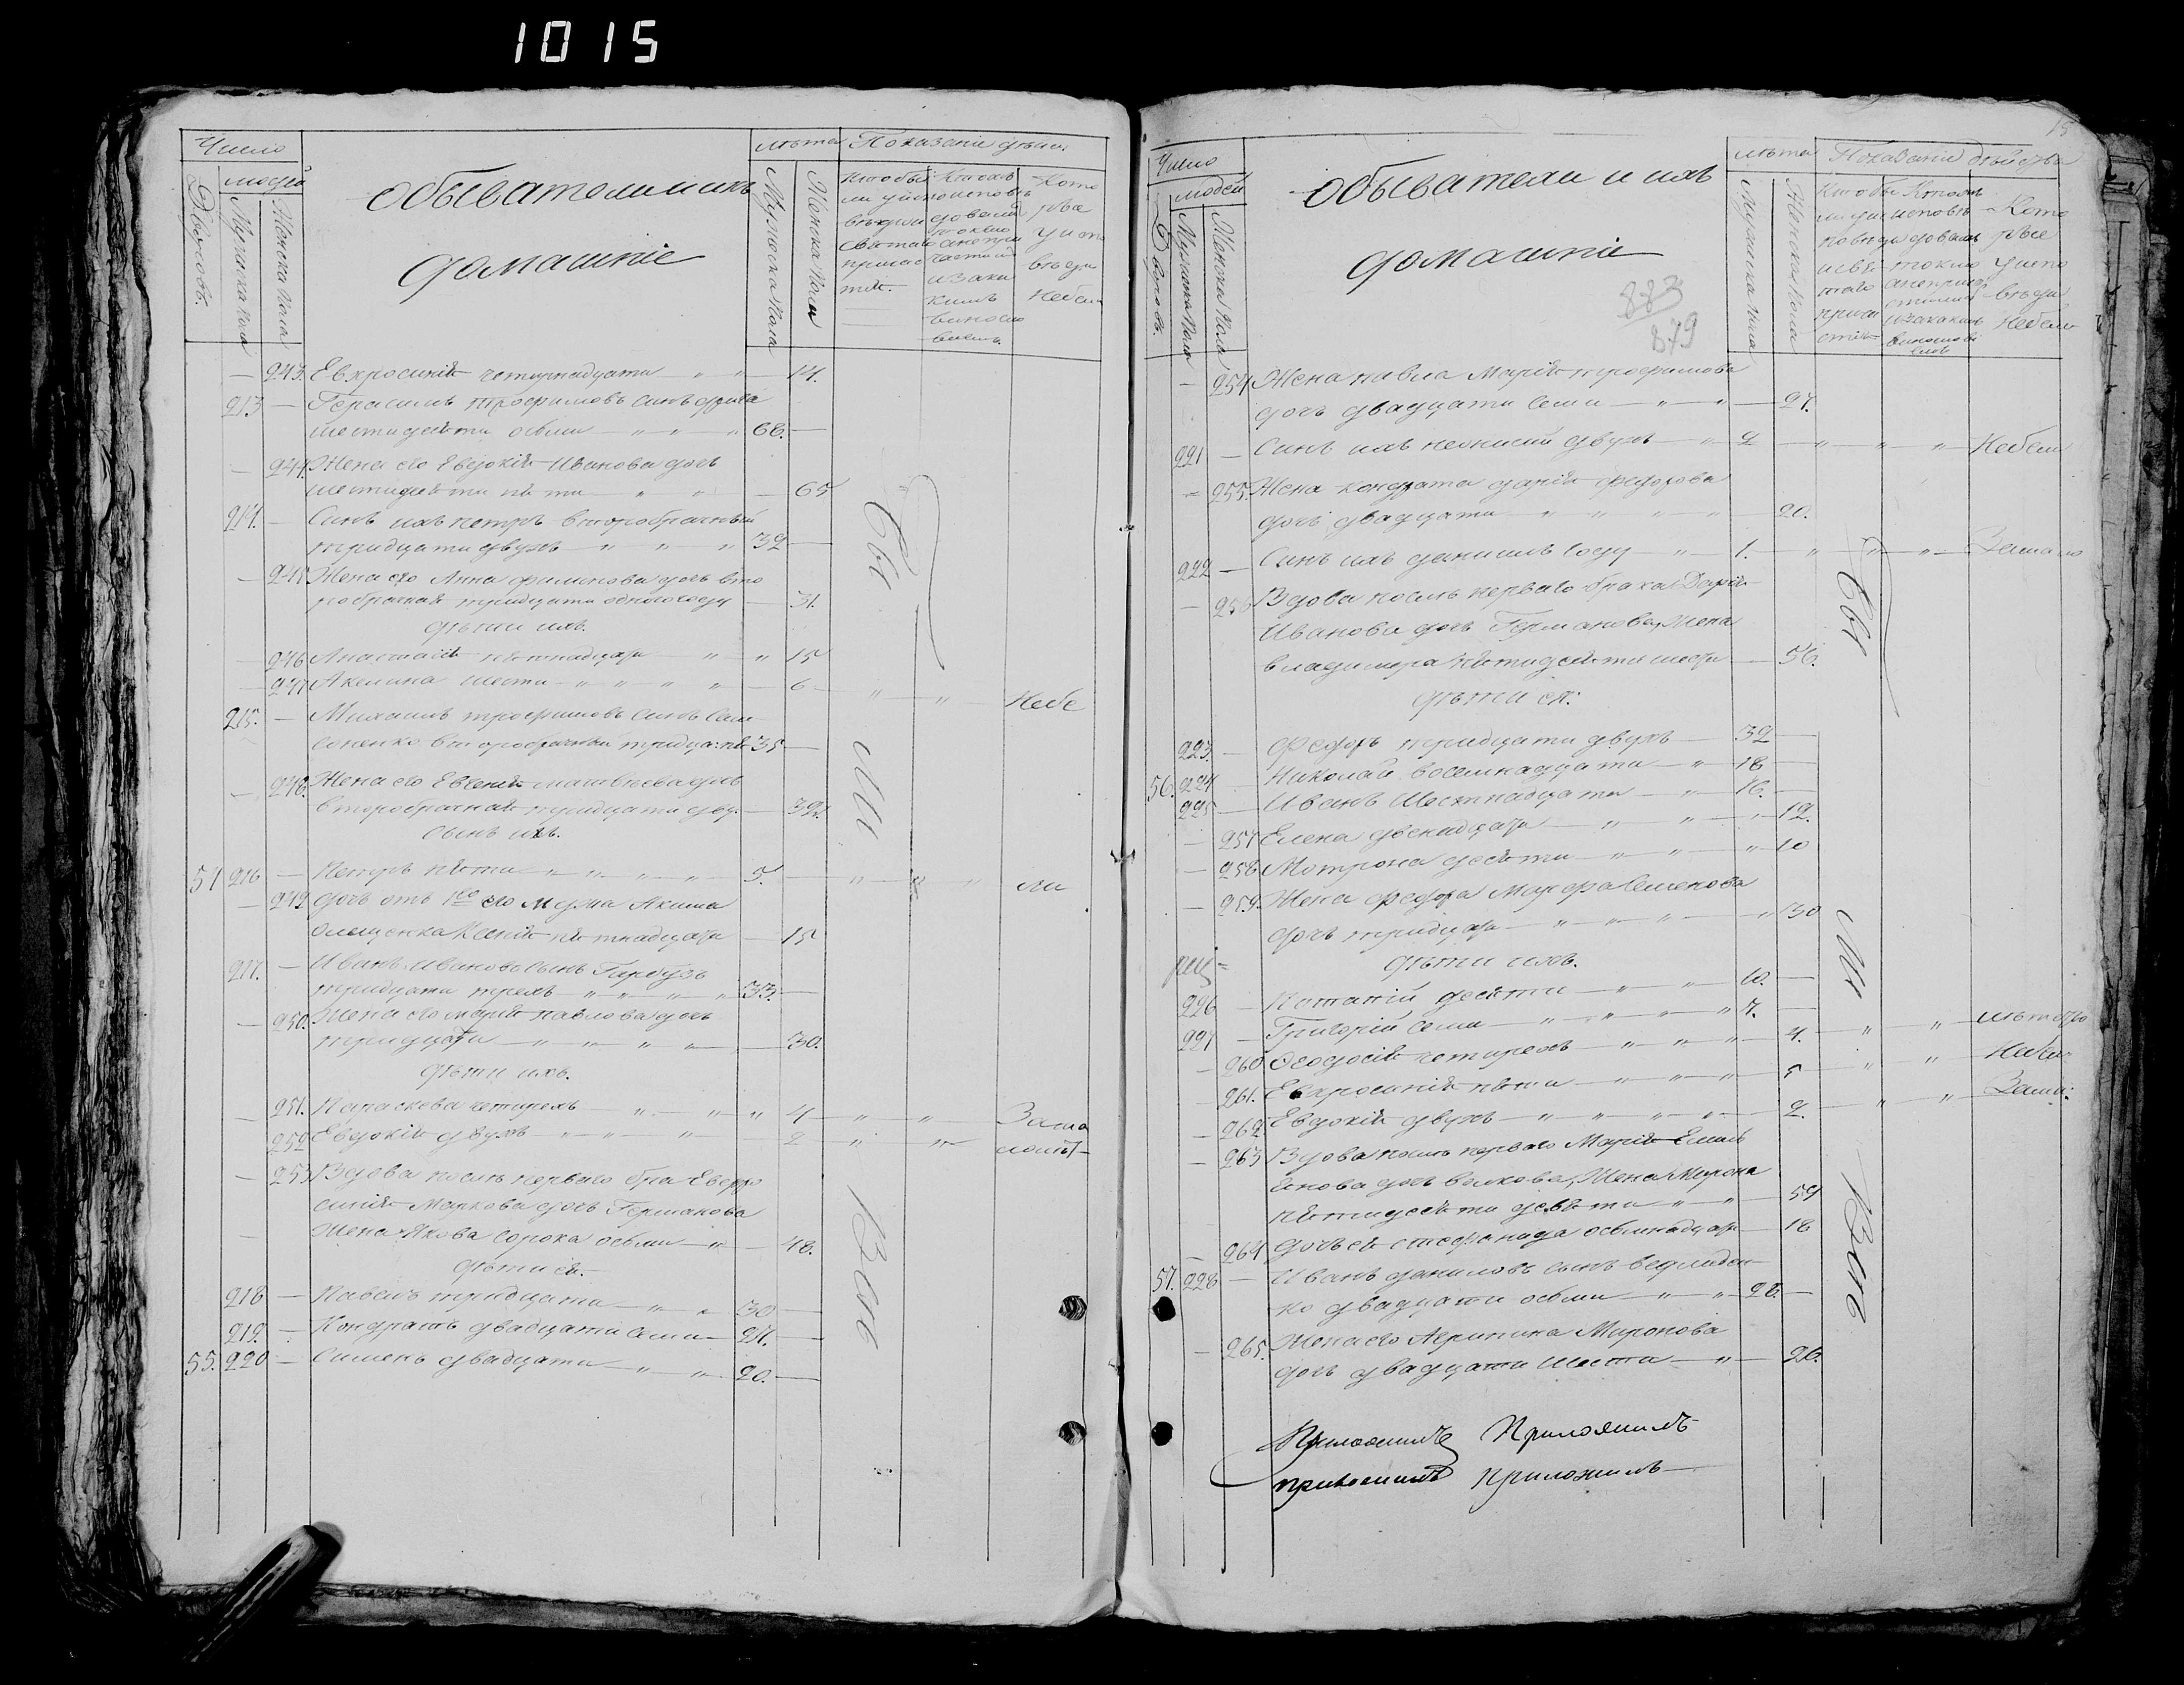 1015
Число
людей
Дворовъ.
Мужеска пола
Женска пола
обыватели и ихъ
домашніе
лѣта
Мужеска пола
Женска пола
Показаніе дѣйст
Кто были у исповѣди и святаго причастія.
Кто исповѣдовались токмо а не причастились и за какимъ винословіемъ.
Которые у исповѣди не были
243. Евхросинія четырнадцати 14.
213 Герасимъ Трофимовъ сынъ
шестидесяти осьми 68.
244 Жена его Евдокія Иванова дочь
шестидесяти пяти 65
214. Сынъ ихъ петръ второбрачный
тридцати двухъ 32
245 Жена его Анна филипова дочь вто
робрачная тридцати одного году 31.
дѣти ихъ.
246 Анастасія пятнадцати 15
247 Акелина шести 6 Небы
215. Михаилъ трофимовъ сынъ Сам
соненко второбрачный тридца: пя 35
248. Жена его Евгенія матвѣева дочь
второбрачная тридцати дву. 32.
сынъ ихъ.
54 216 Петръ пяти 5. ли
249 дочь отъ 1го его мужа Якима
Ксенія пятнадцати 15
217. Иванъ Ивановъ сынъ Гарбузъ
тридцати трехъ 33.
250. Жена его марія павлова дочь
тридцати 30.
дѣти ихъ.
251. Параскева четырехъ 4 Зама
252 Евдокія двухъ 2 лолѣт
253 Вдова послѣ перваго бра Евфро
синія Маркова дочь Германова
Жена Якова сорока осьми 48.
дѣти ея.
218 Павелъ тридцати 30
219. Кондратъ двадцати семи 27.
55. 220 Сименъ двадцати 20.
Бы
ли
Вси
15
Число
людей
Дворовъ.
Мужеска пола
Женска пола
обыватели и ихъ
домашніе
883
879
лѣта
Мужеска пола
Женска пола
Показаніе дѣйства
Кто были у исповѣди и святаго причастія
Кто исповѣдовались токмо а не причастились и за какимъ винословіемъ
Которые у исповѣди не были
254 Жена павла Марія трофимова
дочь двадцати семи 27.
221 Сынъ ихъ двухъ 2 Небы
255. Жена кондрата дарія федорова
дочь двадцати 20.
222 Сынъ ихъ даниилъ году 1. Замало
256 Вдова послѣ перваго брака Дарія
Иванова дочь Германова, Жена
владимера пятидесяти шести 56.
дѣти ея:
223. Федоръ тридцати двухъ 32
56. 224 Николай восемнадцати 18
225 Иванъ Шестнадцати 16.
257 Елена двенадцати 12.
258 Мотрона десяти 10
259. Жена федора Марфа Семенова
дочь тридцати 30
дѣти ихъ.
226 Потапій десяти 10.
227 Григорій семи 7.
260 Феодосія четырехъ 4. лѣтство
261. Евхросинія пяти 5 Небы
262. Евдокія двухъ 2. Зама:
263 Вдова послѣ перваго Марія Емель
янова дочь волкова, Жена Мирона
пятидесяти девяти 59
264 дочь ея стефанида осьмнадцати 18
57. 228 Иванъ даниловъ сынъ
ко двадцати осьми 28.
265. Жена его Агрипина Миронова
дочь двадцати шести 26.
Бы
ли
Вси
Приложилъ Приложилъ
приложилъ приложилъ